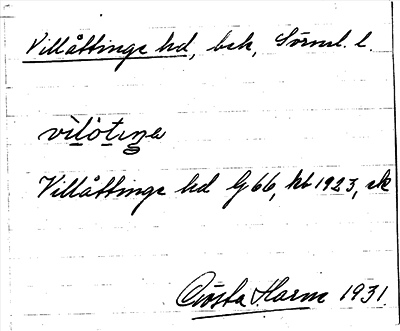 Villåttinge hd, bsk, Sörml. l.
vilòtıŋa
Villåttinge hd G 66, kb 1923, sk
Gösta Harm 1931